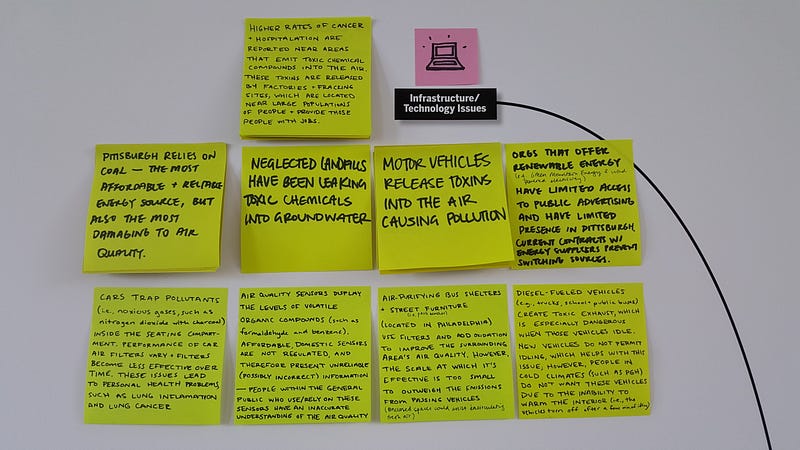 HIGHER RATES OF CANCER
+ HOSPITALATION ARE
REPORTED NEAR AREAS
THAT EMIT TOXIC CHEMICAL
COMPOUNDS INTO THE AIR.
THESE TOXINS ARE RELEASED
BY FACTORIES + FRACKING
SITES, WHICH ARE LOCATED
NEAR LARGE POPULATIONS
OF PEOPLE + PROVIDE THOSE
PEOPLE WITH JOBS.
Infrastructure/
Technology Issues
PITTSBURGH RELIES ON
COAL — THE MOST
AFFORDABLE + RELIABLE
ENERGY SOURCE, BUT
ALSO THE MOST
DAMAGING TO AIR
QUALITY.
NEGLECTED LANDFILLS
HAVE BEEN LEAKING
TOXIC CHEMICALS
INTO GROUNDWATER
MOTOR VEHICLES
RELEASE TOXINS
INTO THE AIR
CAUSING POLLUTION
ORGS THAT OFFER
RENEWABLE ENERGY
(e.g. Green Mountain Energy &
HAVE LIMITED ACCESS
TO PUBLIC ADVERTISING
AND HAVE LIMITED
PRESENCE IN PITTSBURGH.
CURRENT CONTRACTS W/
ENERGY SUPPLIERS PREVENT
SWITCHING SOURCES.
CARS TRAP POLLUTANTS
(i.e., noxious gases, such as
nitrogen dioxide with charcoal)
INSIDE THE SEATING COMPART-
MENT. PERFORMANCE OF CAR
AIR FILTERS VARY + FILTERS
BECOME LESS EFFECTIVE OVER
TIME. THESE ISSUES LEAD
TO PERSONAL HEALTH PROBLEMS,
SUCH AS LUNG INFLAMATION
AND LUNG CANCER
AIR QUALITY SENSORS DISPLAY
THE LEVELS OF VOLATILE
ORGANIC COMPOUNDS (such as
formaldehyde and benzene).
AFFORDABLE, DOMESTIC SENSORS
ARE NOT REGULATED, AND
THEREFORE PRESENT UNRELIABLE
(POSSIBLY INCORRECT) INFORMATION
— PEOPLE WITHIN THE GENERAL
PUBLIC WHO USE/RELY ON THESE
SENSORS HAVE AN INACCURATE
UNDERSTANDING OF THE AIR QUALITY
AIR-PURIFYING BUS SHELTERS
+ STREET FURNITURE
(LOCATED IN PHILADELPHIA)
USE FILTERS AND
TO IMPROVE THE SURROUNDING
AREA'S AIR QUALITY, HOWEVER,
THE SCALE AT WHICH IT'S
EFFECTIVE IS TOO SMALL
TO OUTWEIGH THE EMISSIONS
FROM PASSING VEHICLES
DIESEL-FUELED VEHICLES
(e.g., trucks, school + public buses)
CREATE TOXIC EXHAUST, WHICH
IS ESPECIALLY DANGEROUS
WHEN THOSE VEHICLES IDLE.
NEW VEHICLES DO NOT PERMIT
IDLING, WHICH HELPS WITH THIS
ISSUE, HOWEVER, PEOPLE IN
COLD CLIMATES (SUCH AS PGH)
DO NOT WANT THESE VEHICLES
DUE TO THE INABILITY TO
WARM THE INTERIOR (i.e., the
vehicles turn off after a few min of idling)